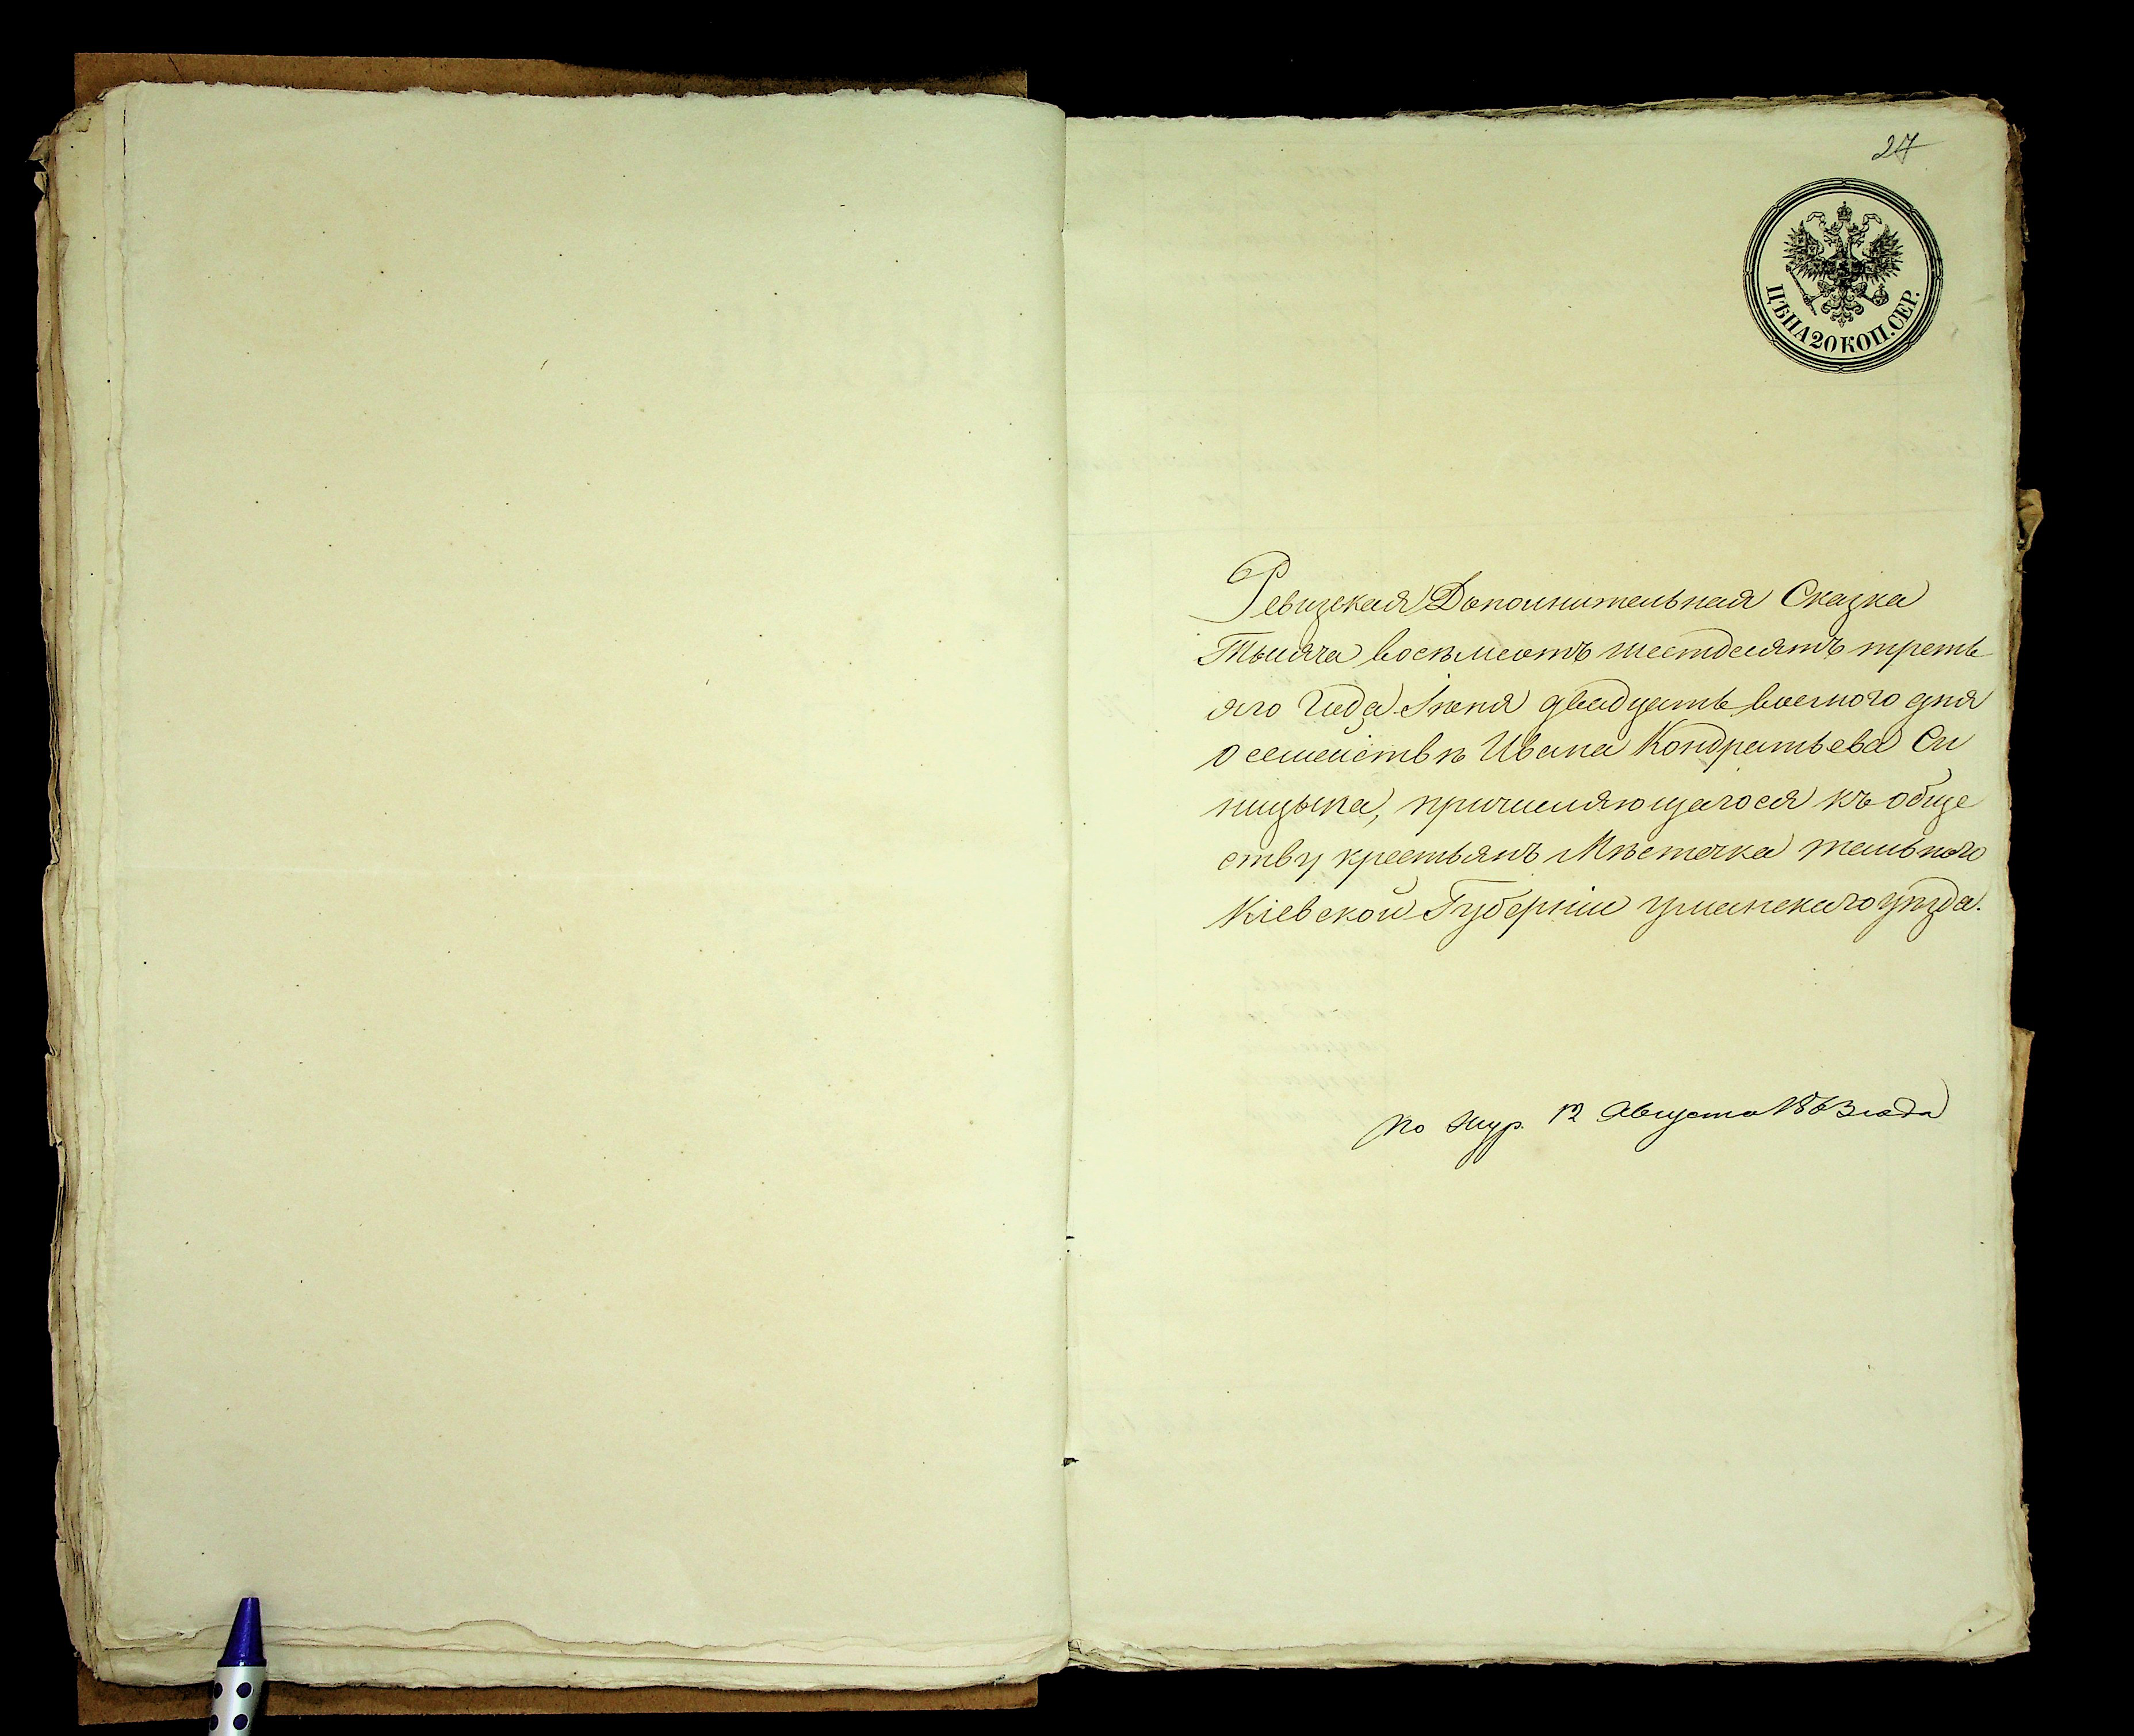 27
ЦѢНА 20 КОП. СЕР.
Ревизская Дополнительная Сказка
Тысяча восемьсотъ шестдесятъ треть
яго года Іюня двадцать восмого дня
о семействѣ Ивана Кондратьева Си
ницына, причисляющагося къ обще
ству крестьянъ Мѣстечка Тального
Кіевской Губерніи уманскаго уѣзда.
по жур. 12 Августа 1863 года